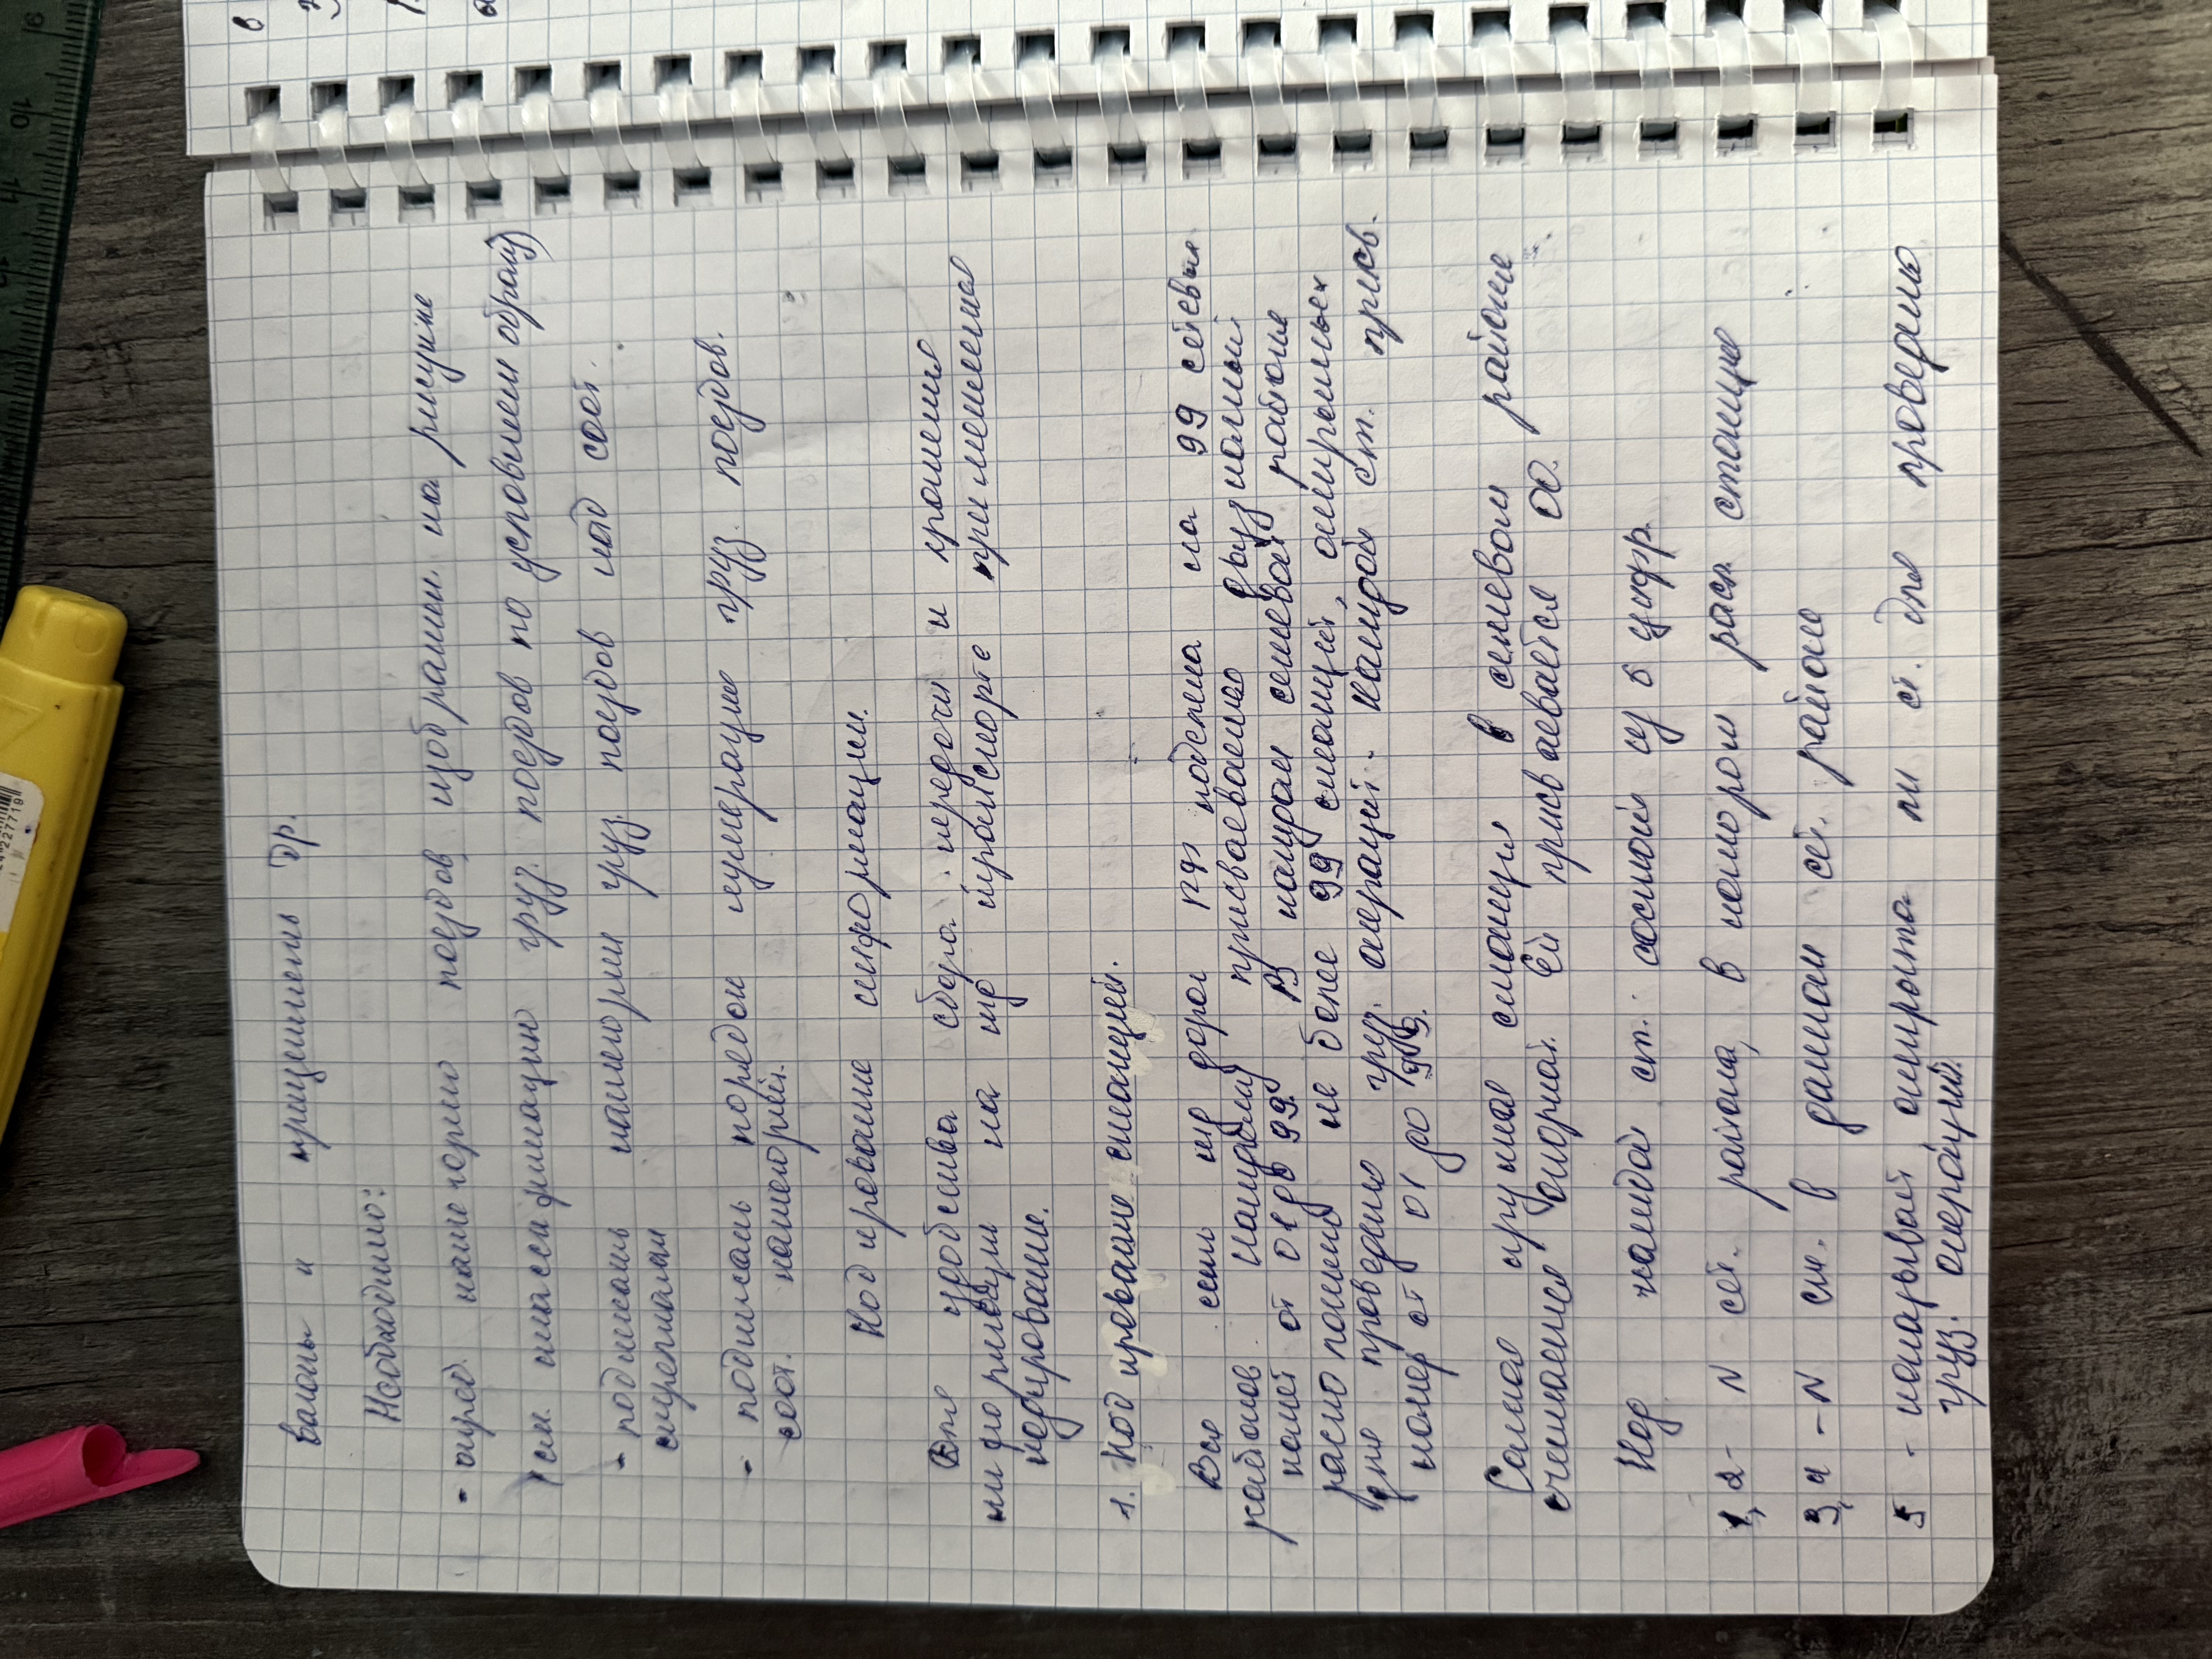 вагоны и прицепить др.
Необходимо:
- опред. категорию поездов, изображ. на рисунке
(см. классификацию груз. поездов по условном образу)
- подписать категории груз. поездов над соот.
стрелками
- подписать порядок нумерации груз. поездов.
соот. категорией.
Кодирование информации.
Для удобства сбора, передачи и хранения
информации на жд транспорте применена
кодирование.
1. Кодирование станций.
Вся сеть жд дорог РФ поделена на 99 сетевых
районов. Каждому присваивается двузначный
номер от 01 до 99. В каждом сетевом районе
расположено не более 99 станций, открытых
для проведения груз. операций. каждой ст. присв.
номер от 01 до 99.
Самая крупная станция в сетевом районе
считается опорной. Ей присваивается 00.
Код каждой ст. состоит из 5 цифр.
1,2 - N сет. района, в котором расп. станция
3,4 - N ст. в данном сет. районе
5 - показывает открыта ли ст. для проведения
груз. операций.
10
11